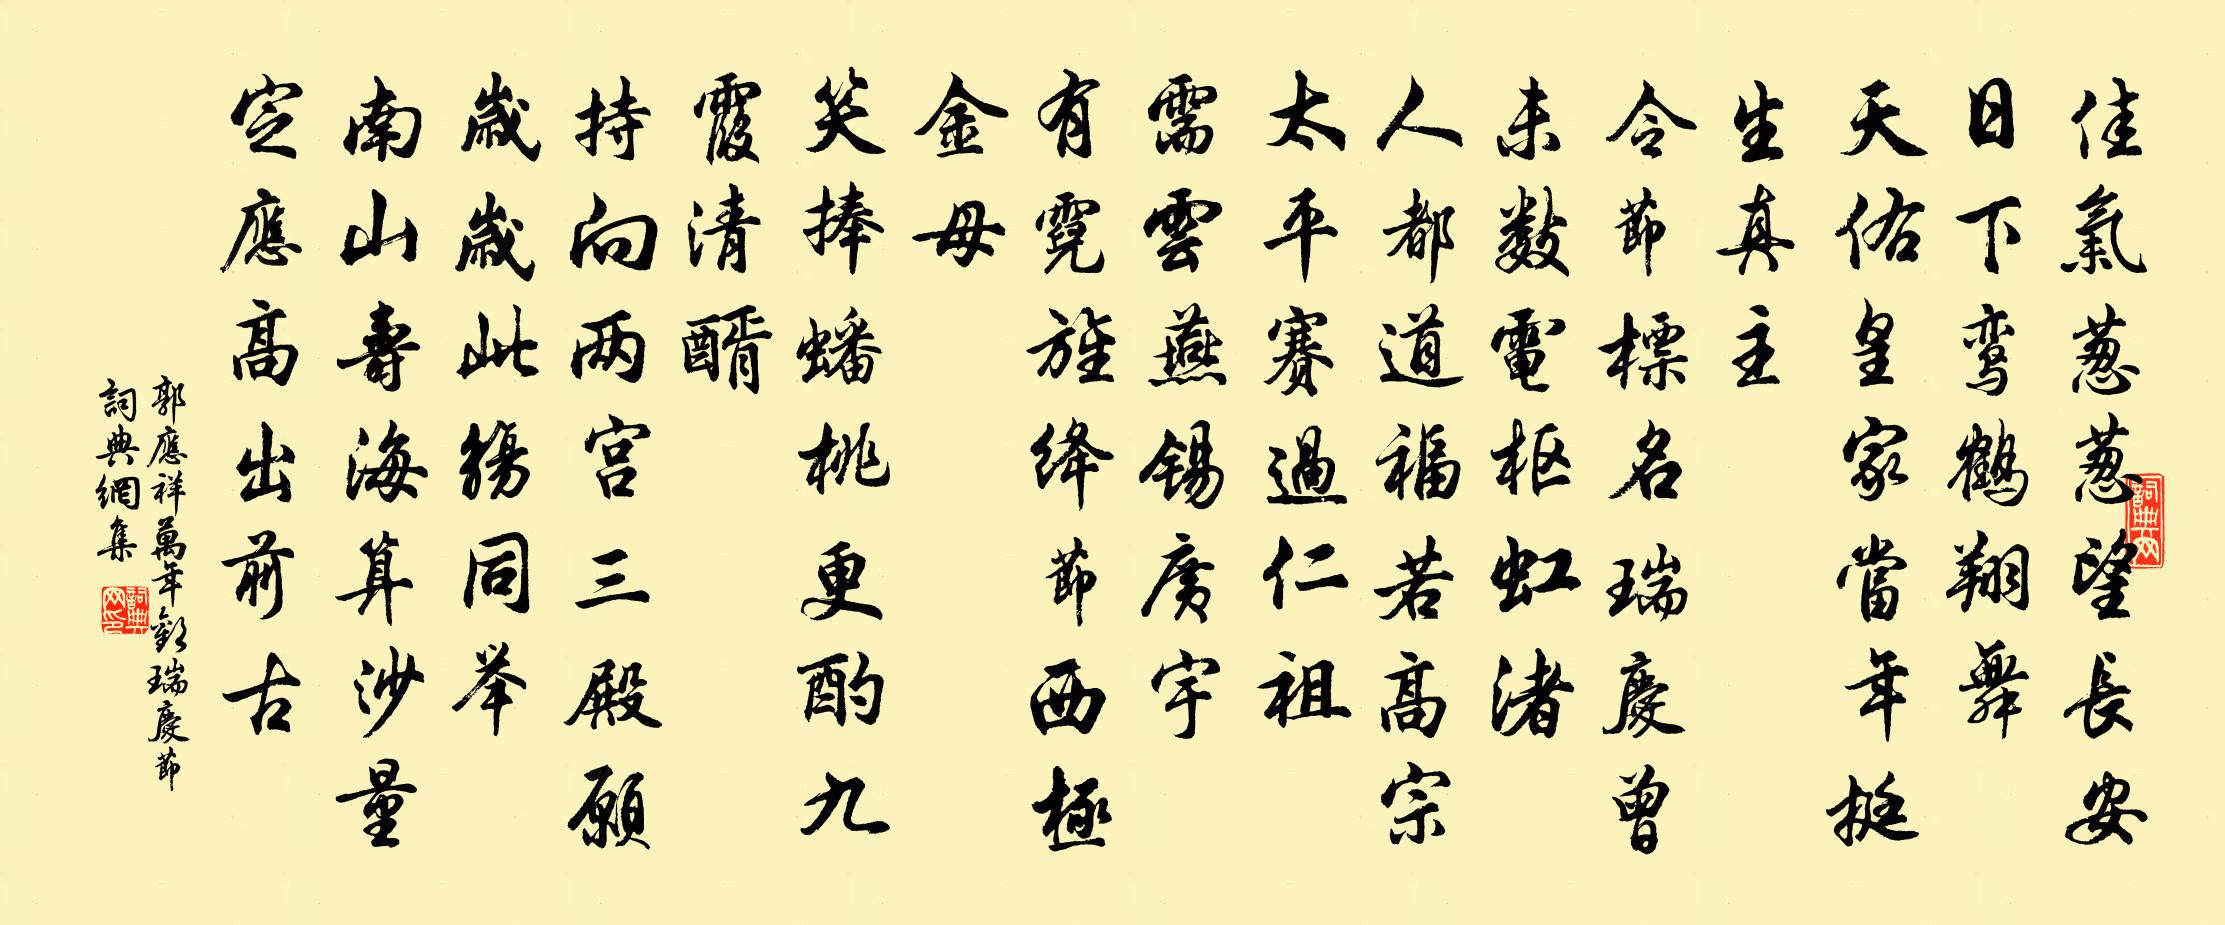 佳氣葱葱望長安
日下鸾鶴翔舞
天佑皇家當年挺
生真主
令節標名瑞慶曾
未數電枢虹渚
人都道福若高宗
太平賽過仁祖
需雲燕锡廣宇
有霓旌绛節西極
金母
笑捧蟠桃更酌九
霞清醑
持向两宫三殿願
歲歲此觴同举
南山壽海算沙量
定應高出前古
郭應祥萬年歡瑞慶節
詞典網集
詞典网
詞典网印